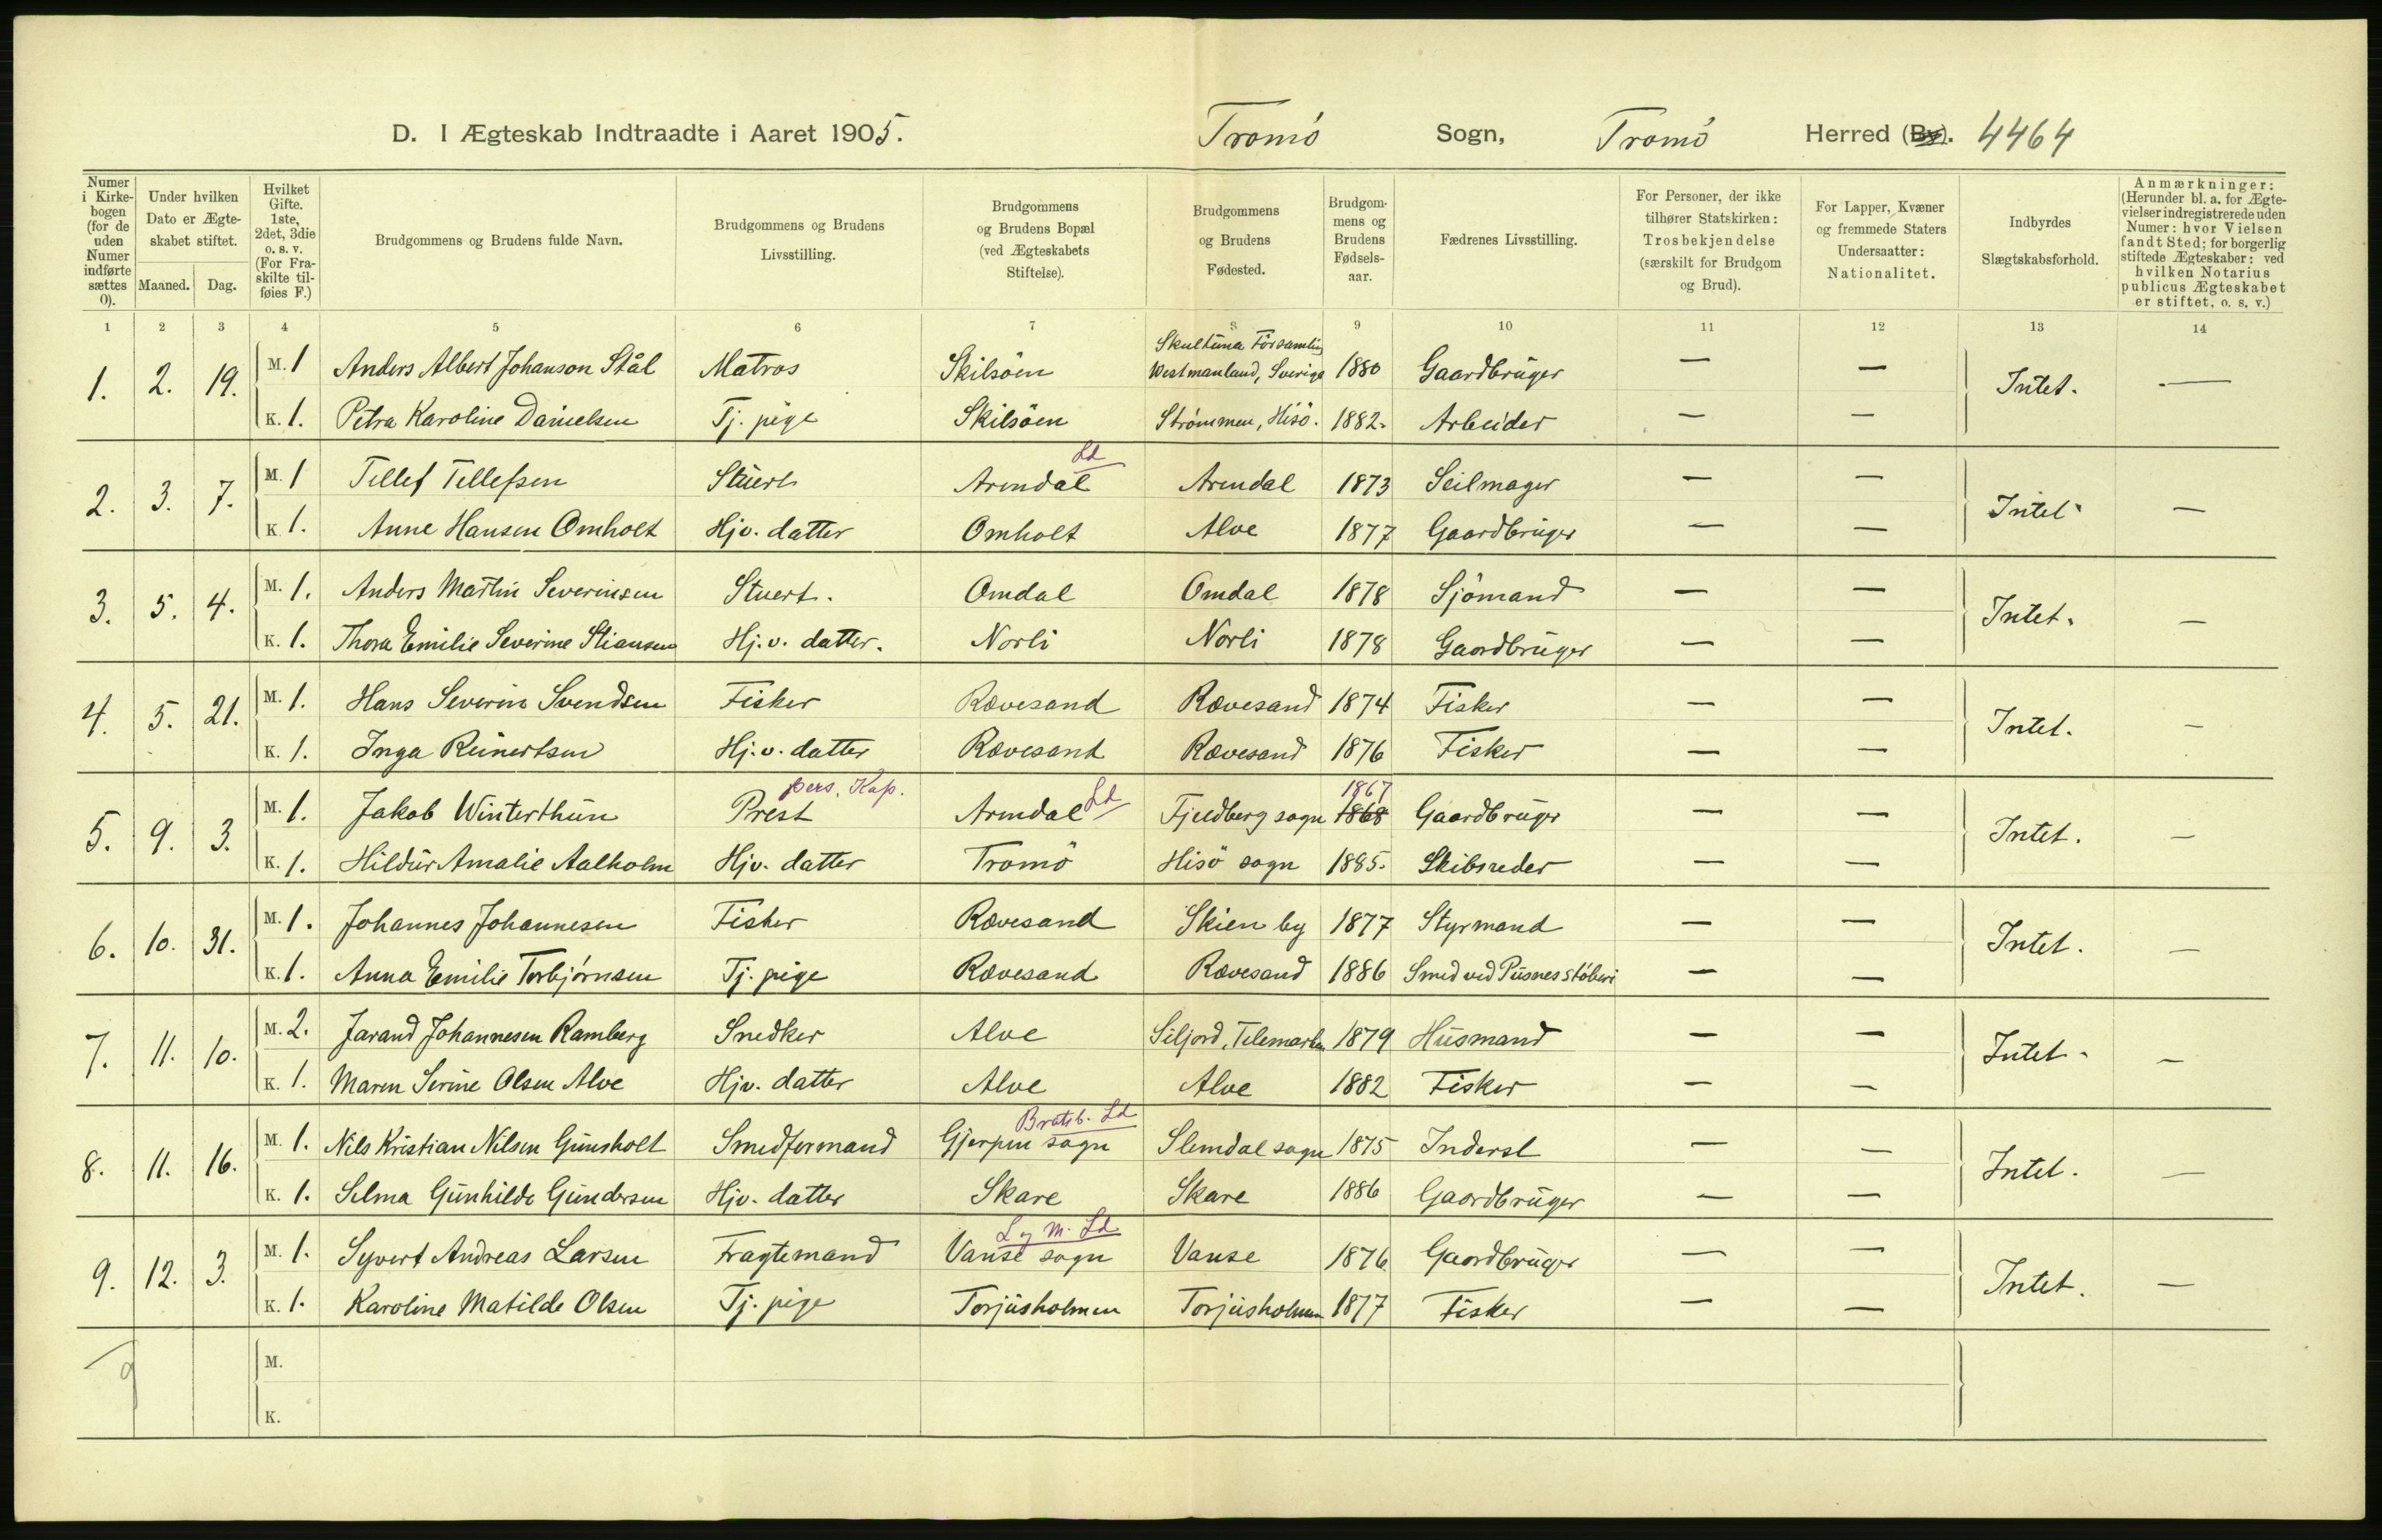 D. I Ægteskab Indtraadte i Aaret 1905. Tromö Sogn, Tromö Herred (By). 4464
Numer i Kirkebogen (for de uden Numer indførte sættes 0).
Under hvilken Dato er Ægteskabet stiftet.
Maaned. Dag.
Hvilket Gifte. 1ste, 2det, 3die o. s. v. (For Fraskilte tilføies F.)
Brudgommens og Brudens fulde Navn.
Brudgommens og Brudens Livsstilling.
Brudgommens og Brudens Bopæl (ved Ægteskabets Stiftelse).
Brudgommens og Brudens Fødested.
Brudgommens og Brudens Fødselsaar.
Fædrenes Livsstilling.
For Personer, der ikke tilhører Statskirken: Trosbekjendelse (særskilt for Brudgom og Brud).
For Lapper, Kvæner og fremmede Staters Undersaatter: Nationalitet.
Indbyrdes Slægtskabsforhold.
Anmærkninger: (Herunder bl. a. for Ægtevielser indregistrerede uden Numer: hvor Vielsen fandt Sted; for borgerlig stiftede Ægteskaber: ved hvilken Notarius publicus Ægteskabet er stiftet, o. s. v.)
1 2 3 4 5 6 7 8 9 10 11 12 13 14
1. 2. 19. M. 1 Anders Albert Johanson Stål Matros Skilsöen Skultuna Församling Westmanland, Sverige 1880 Gaardbruger — — Intet. —
K. 1. Petra Karoline Danielsen Tj. pige Skilsöen Strömmen, Hisö. 1882. Arbeider — —
2. 3. 7. M. 1 Tellef Tellefsen Stuert Arendal Ld Arendal 1873 Seilmager — — Intet. —
K. 1. Anne Hansen Omholt Hjv. datter Omholt Alve 1877 Gaardbruger — —
3. 5. 4. M. 1. Anders Martin Severinsen Stuert. Omdal Omdal 1878 Sjömand — — Intet. —
K. 1. Thora Emilie Severine Stiansen Hj. v. datter. Norli Norli 1878 Gaardbruger — —
4. 5. 21. M. 1. Hans Severin Svendsen Fisker Rævesand Rævesand 1874 Fisker — — Intet. —
K. 1. Inga Reinertsen Hj. v. datter Rævesand Rævesand 1876 Fisker — —
5. 9. 3. M. 1. Jakob Winterthun Prest pers. Kap. Arendal Ld Fjeldberg sogn 1868 1867 Gaardbruger — — Intet. —
K. 1. Hildur Amalie Aalholm Hjv. datter Tromö Hisö sogn 1885. Skibsreder — —
6. 10. 31. M. 1. Johannes Johannesen Fisker Rævesand Skien by 1877 Styrmand — — Intet. —
K. 1. Anna Emilie Torbjörnsen Tj. pige Rævesand Rævesand 1886 Smed ved Pusnes stöberi — —
7. 11. 10. M. 2. Jarand Johannesen Ramberg Snedker Alve Siljord, Telemarken 1879 Husmand — — Intet. —
K. 1. Maren Serine Olsen Alve Hjv. datter Alve Alve 1882 Fisker — —
8. 11. 16. M. 1. Nils Kristian Nilsen Gunsholt Smedformand Gjerpen sogn Bratsb. Ld Slemdal sogn 1875 Inderst — — Intet. —
K. 1. Selma Gunhilde Gundersen Hjv. datter Skare Skare 1886 Gaardbruger — —
9. 12. 3. M. 1. Syvert Andreas Larsen Fragtemand Vanse sogn L. og M. Ld Vanse 1876 Gaardbruger — — Intet. —
K. 1. Karoline Matilde Olsen Tj. pige Torjusholmen Torjusholmen 1877 Fisker — —
9 M.
K.